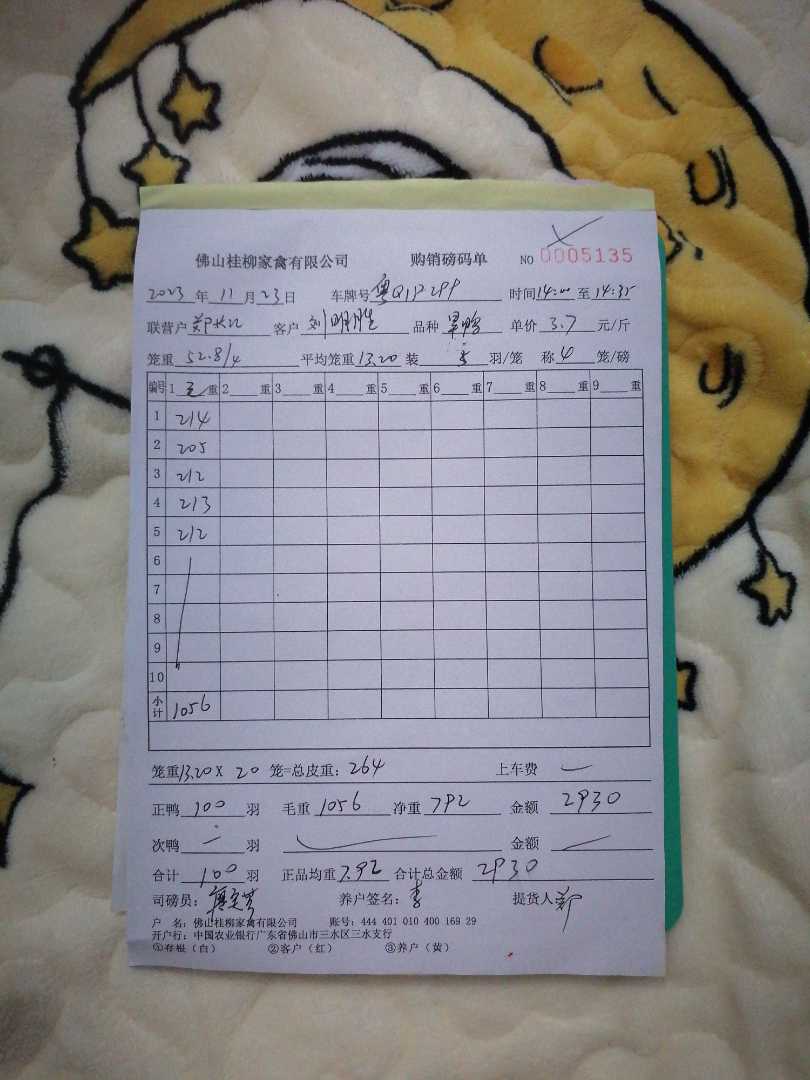 佛山桂柳家禽有限公司 购销磅码单 NO 0005135
2023 年 11 月 23 日 车牌号 粤Q1P299 时间 14:00 至 14:35
联营户 客户 刘明胜 品种 单价 3.7 元/斤
笼重 52.8/4 平均笼重 13.20 装 5 羽/笼 称 4 笼/磅
编号 1 重 2 重 3 重 4 重 5 重 6 重 7 重 8 重 9 重
1 214
2 205
3 212
4 213
5 212
6
7
8
9
10
小计 1056
笼重 13.20 X 20 笼=总皮重: 264 上车费 —
正鸭 100 羽 毛重 1056 净重 792 金额 2930
次鸭 — 羽 金额 —
合计 100 羽 正品均重 7.92 合计总金额 2930
司磅员: 养户签名: 李 提货人 郑
户 名: 佛山桂柳家禽有限公司 账号: 444 401 010 400 169 29
开户行: 中国农业银行广东省佛山市三水区三水支行
①存根（白） ②客户（红） ③养户（黄）